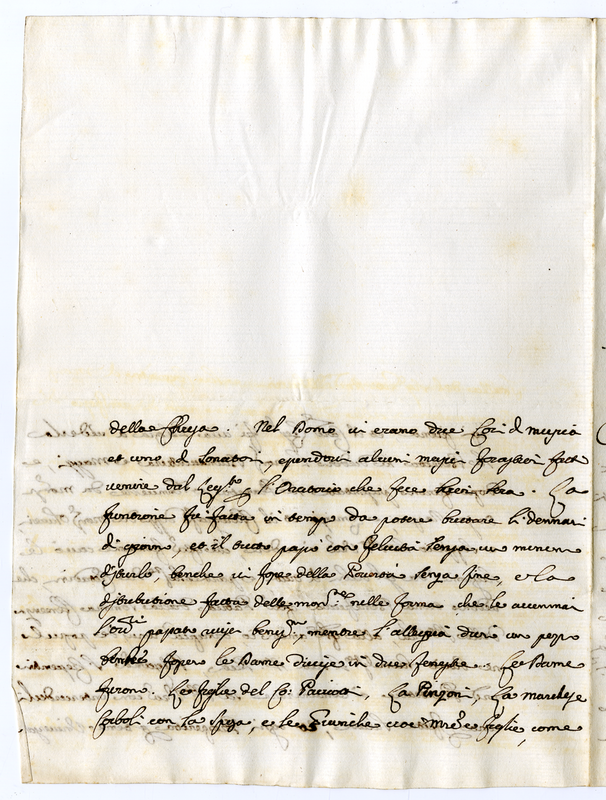 della Chiesa. Nel Domo vi erano due Cori di musica
et uno di Sonatori, essendovi alcuni musici forastieri fatti
venire dal per l'Oratorio che fece hieri sera. La
funtione fu fatta in tempo da potere buttare li dennari
di giorno, et il tutto passò con felicità senza un minimo
disturbo, benche vi fosse della Povertà senza fine, e la
distributione fatta delle mon.te nelle forma che le accennai
l'ord.o passato riuscì ben.mo, mentre l'allegria durò un pezzo
fossero le Dame divise in due fenestre. Le Dame
furono. Le figlie del Co: Paccioti, La Pinzoni, La marchese
Corboli con la Sposa, e le cioè Mre e figlie, come